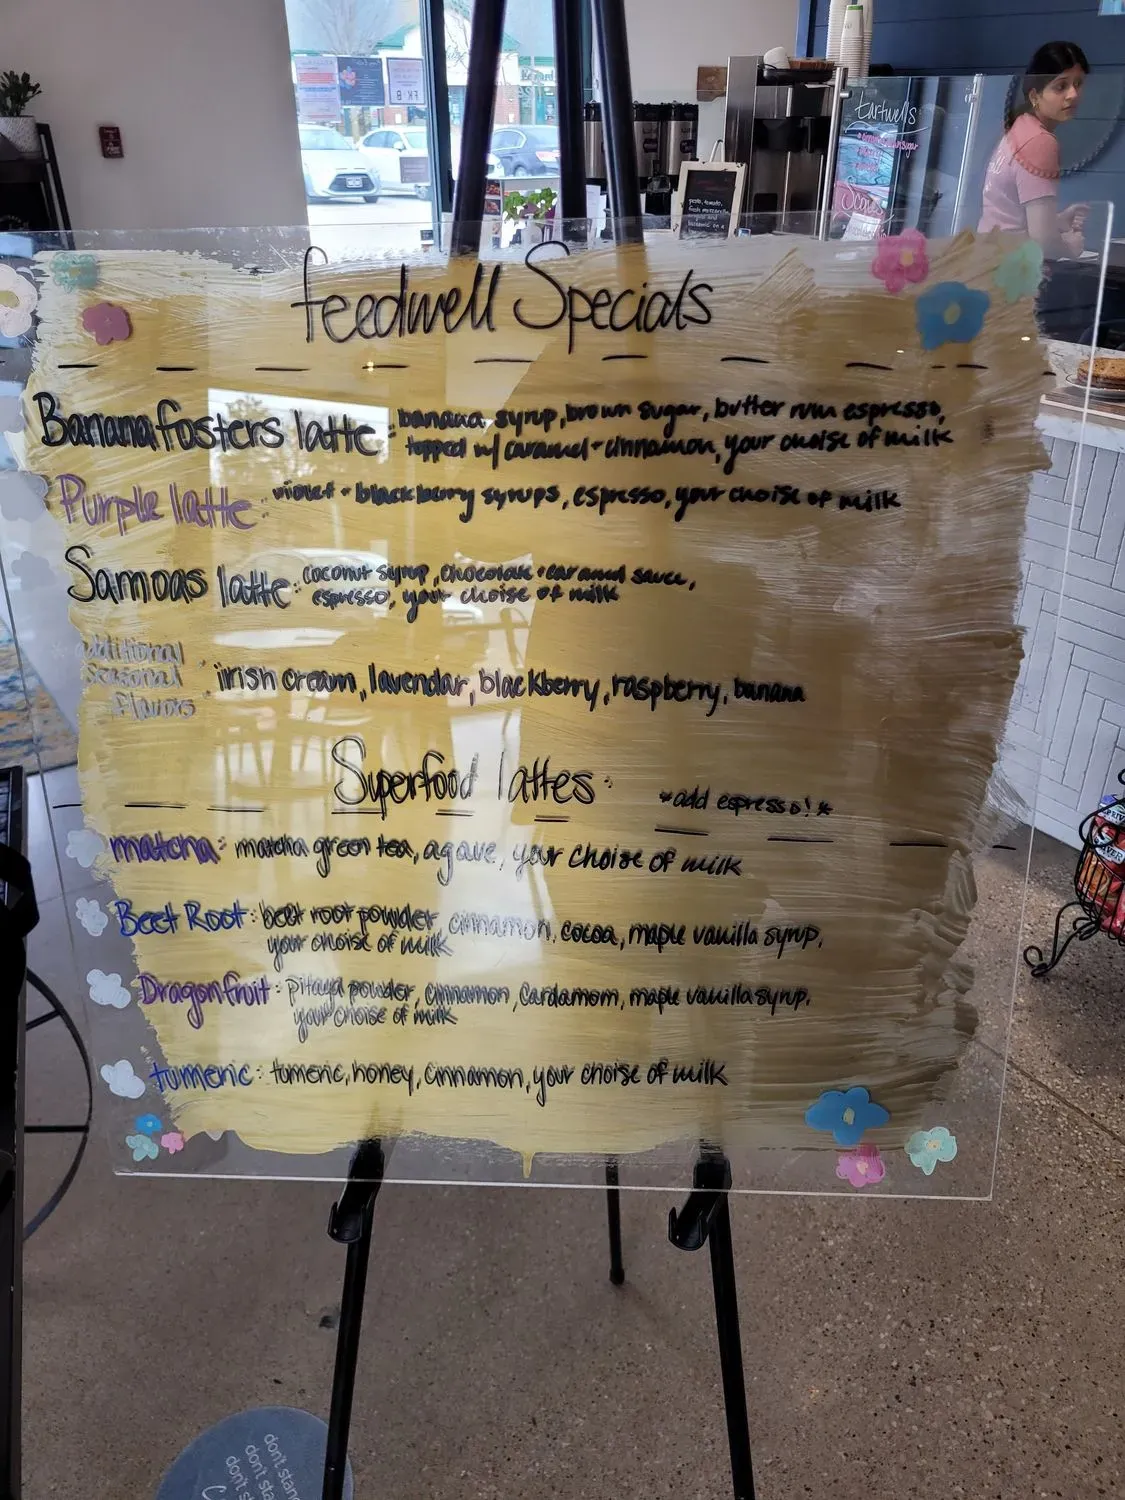 Tartwells
feedwell Specials
Banana fosters latte: banana syrup, brown sugar, butter rum espresso,
topped w/ caramel + cinnamon, your choise of milk
Purple latte: violet + blackberry syrups, espresso, your choise of milk
Samoas latte: coconut syrup, chocolate + caramel sauce,
espresso, your choise of milk
additional
seasonal
flavors: irish cream, lavendar, blackberry, raspberry, banana
Superfood lattes: *add espresso!*
matcha: matcha green tea, agave, your choise of milk
Beet Root: beet root powder, cinnamon, cocoa, maple vanilla syrup,
your choise of milk
Dragonfruit: pitaya powder, cinnamon, cardamom, maple vanilla syrup,
your choise of milk
tumeric: tumeric, honey, cinnamon, your choise of milk
don't stand
don't sta
don't st